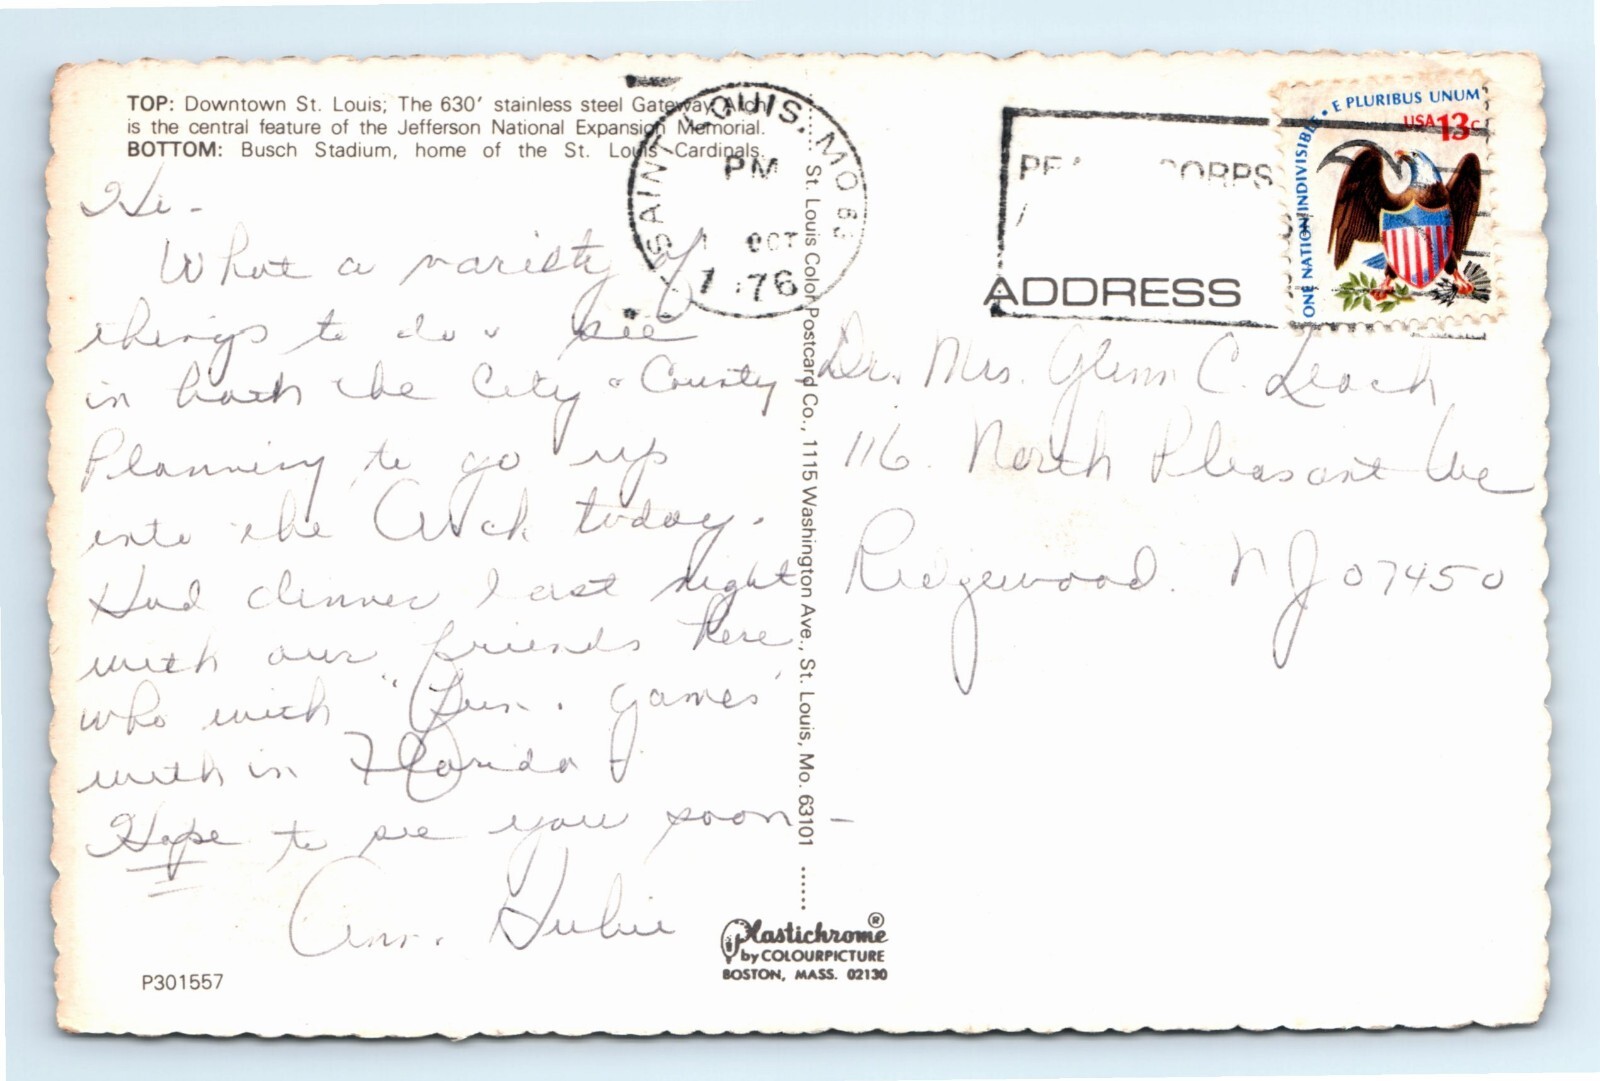 TOP: Downtown St. Louis; The 630' stainless steel Gateway Arch
is the central feature of the Jefferson National Expansion Memorial.
BOTTOM: Busch Stadium, home of the St. Louis Cardinals.
SAINT LOUIS, MO
PM
OCT
1 76
CORPS
ADDRESS
ONE NATION INDIVISIBLE • E PLURIBUS UNUM
USA 13c
Hi -
What a variety of
things to do & see
in both the City & County
Planning to go up
into the Arch today.
Had dinner last night
with our friends here
who with "Fun & games"
with in Florida
Hope to see you soon -
Ann &
Dr. Mrs. Glenn C. Leach
116. North Pleasant Ave
Ridgewood. NJ 07450
St. Louis Color Postcard Co., 1115 Washington Ave., St. Louis, Mo. 63101
Plastichrome®
by COLOURPICTURE
BOSTON, MASS. 02130
P301557